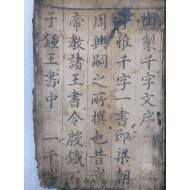 御製千字文序
惟千字一書即梁朝
周興嗣之所撰也昔武
帝教諸王書令殷鐵石
于鍾王書中一千字